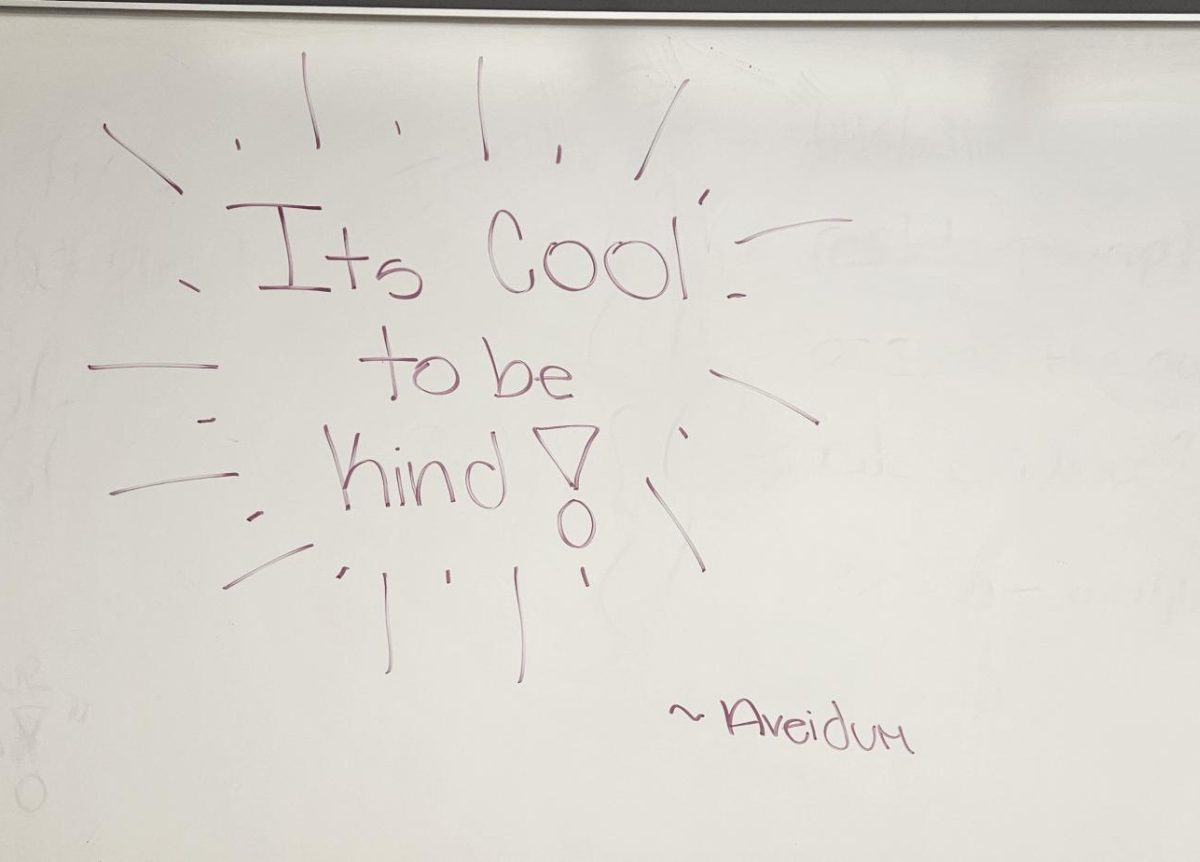 Its Cool
to be
kind!
~ Aveidum